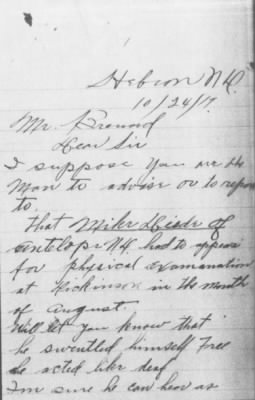 Hebron N.D.
10/24/17.
Mr.
Dear Sir
I suppose you are the
Man to advise or to report
to.
that Mike
antelope N.D. had to appear
for physical examanation
at Dickinson in the month
of august.
Will let you know that
he swentled himself Free
he acted like deaf
I'm sure he can hear as